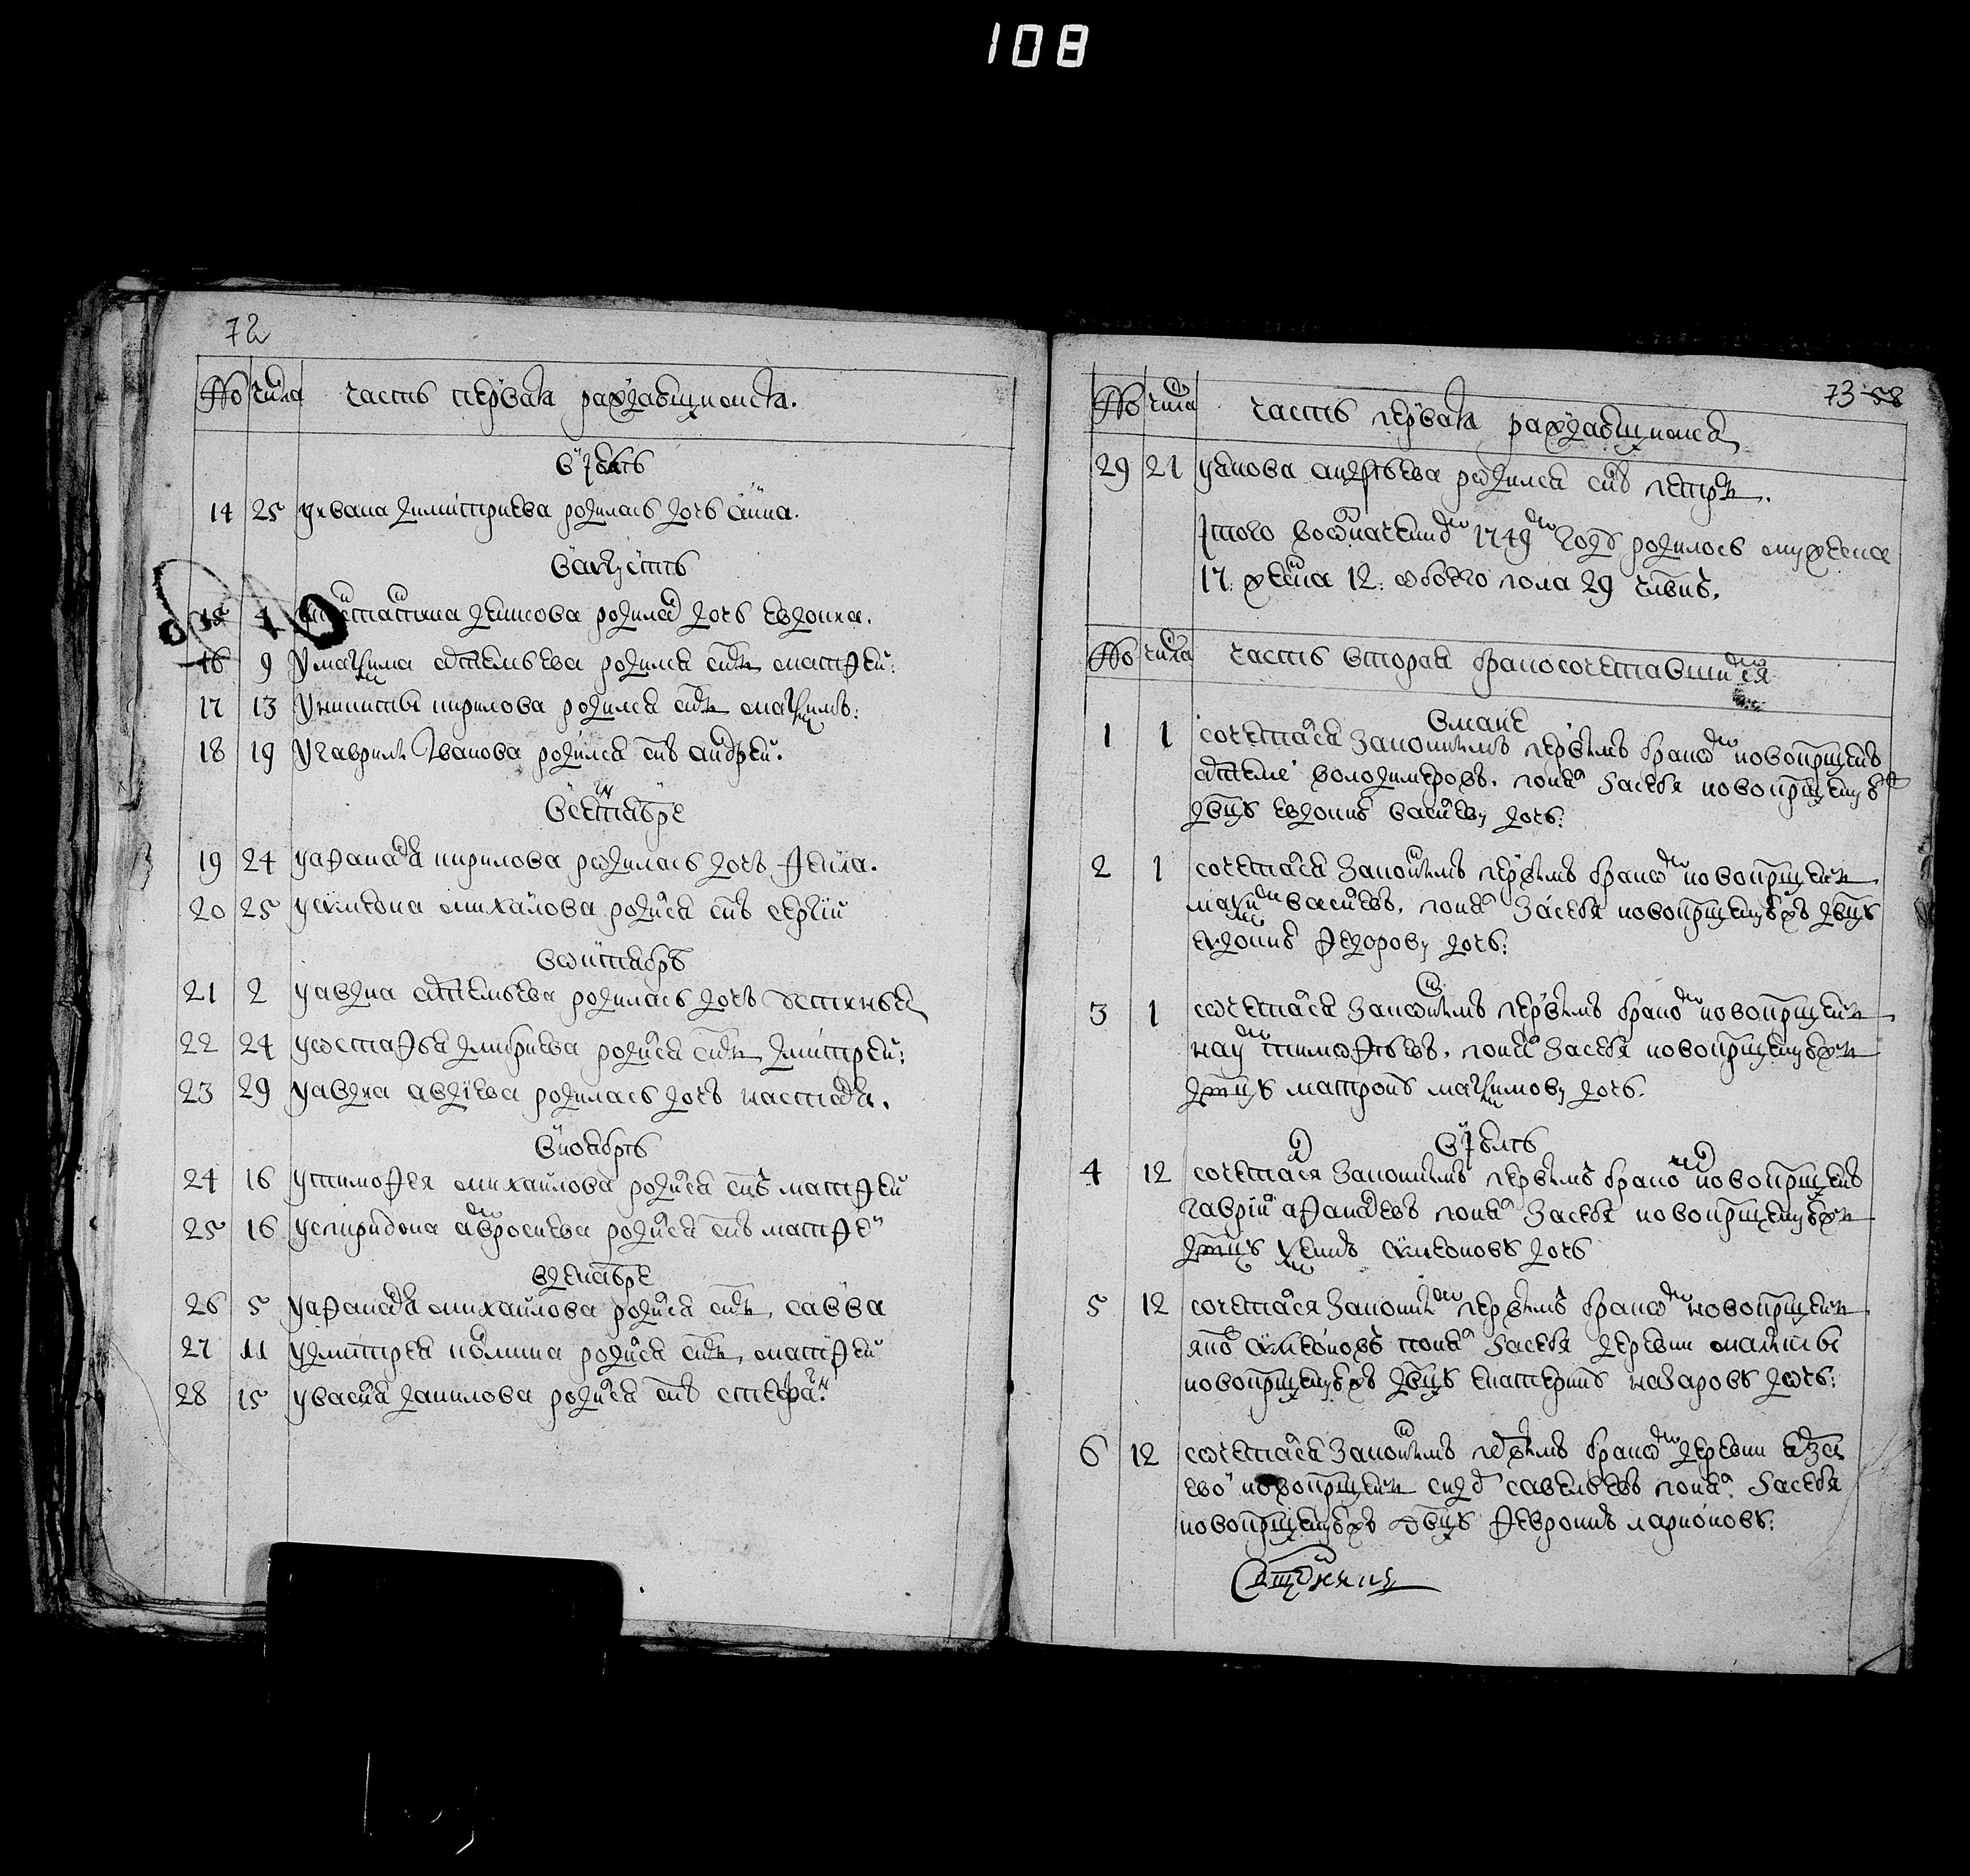 108
72
№ числа часть первая раждающиися.
в июле
14 25 у ивана димитриева родилась дочь анна.
в августе
15 4 денисова родилась дочь евдокиа.
16 9 у магсима савельева родился снъ матфеи:
17 13 у никиты кирилова родился снъ магсимъ:
18 19 у гаврила иванова родился снъ андреи.
в сентябре
19 24 у афанасья кирилова родилась дочь фекла.
20 25 у симеона михаилова родился снъ сергіи
в октябрѣ
21 2 у авдиа савельева родилась дочь устинья
22 24 у остафья дмитриева родился снъ дмитреи:
23 29 у авдиа авдіева родилась дочь настасья.
в ноябрѣ
24 16 у тимофея михаилова родился снъ матфеи
25 16 у спиридона амвросиева родился снъ матфеи
в декабре
26 5 у афанасья михаилова родился снъ савва
27 11 у дмитрея козмина родился снъ матфеи
28 15 у василя данилова родился снъ стефанъ
73 58
№ числа часть первая раждающиися
29 21 у якова андрѣева родился снъ петръ.
итого в означенномъ 1749мъ годѣ родилось мужеска
17. женска 12. обоего пола 29 члвкъ.
№ числа часть вторая бракосочетавшихся
в маие
1 1 сочетался законнымъ первымъ бракомъ новокрещенъ
володимеровъ. понялъ за себя новокрещенскую
двцу евдокию васильеву дочь:
2 1 сочетался законнымъ первымъ бракомъ новокрещенъ
васильевъ, понялъ за себя новокрещенскихъ двцу
евдокию федорову дочь:
3 1 сочетался законнымъ первымъ бракомъ новокрещенъ
наумъ тимофѣевъ, понялъ за себя новокрещенскихъ
двцу матрону магсимову дочь.
в июлѣ
4 12 сочетался законнымъ первымъ бракомъ новокрещенъ
гавріилъ афанасьевъ понялъ за себя новокрещенскихъ
двцу симеонову дочь
5 12 сочетался законнымъ первымъ бракомъ новокрещенъ
яковъ симеоновъ понялъ за себя деревни
новокрещенскихъ двцу екатерину назарову дочь:
6 12 сочетался законнымъ первымъ бракомъ деревни
новокрещенъ савельевъ понялъ за себя
новокрещенскихъ двцу февронию ларионову: